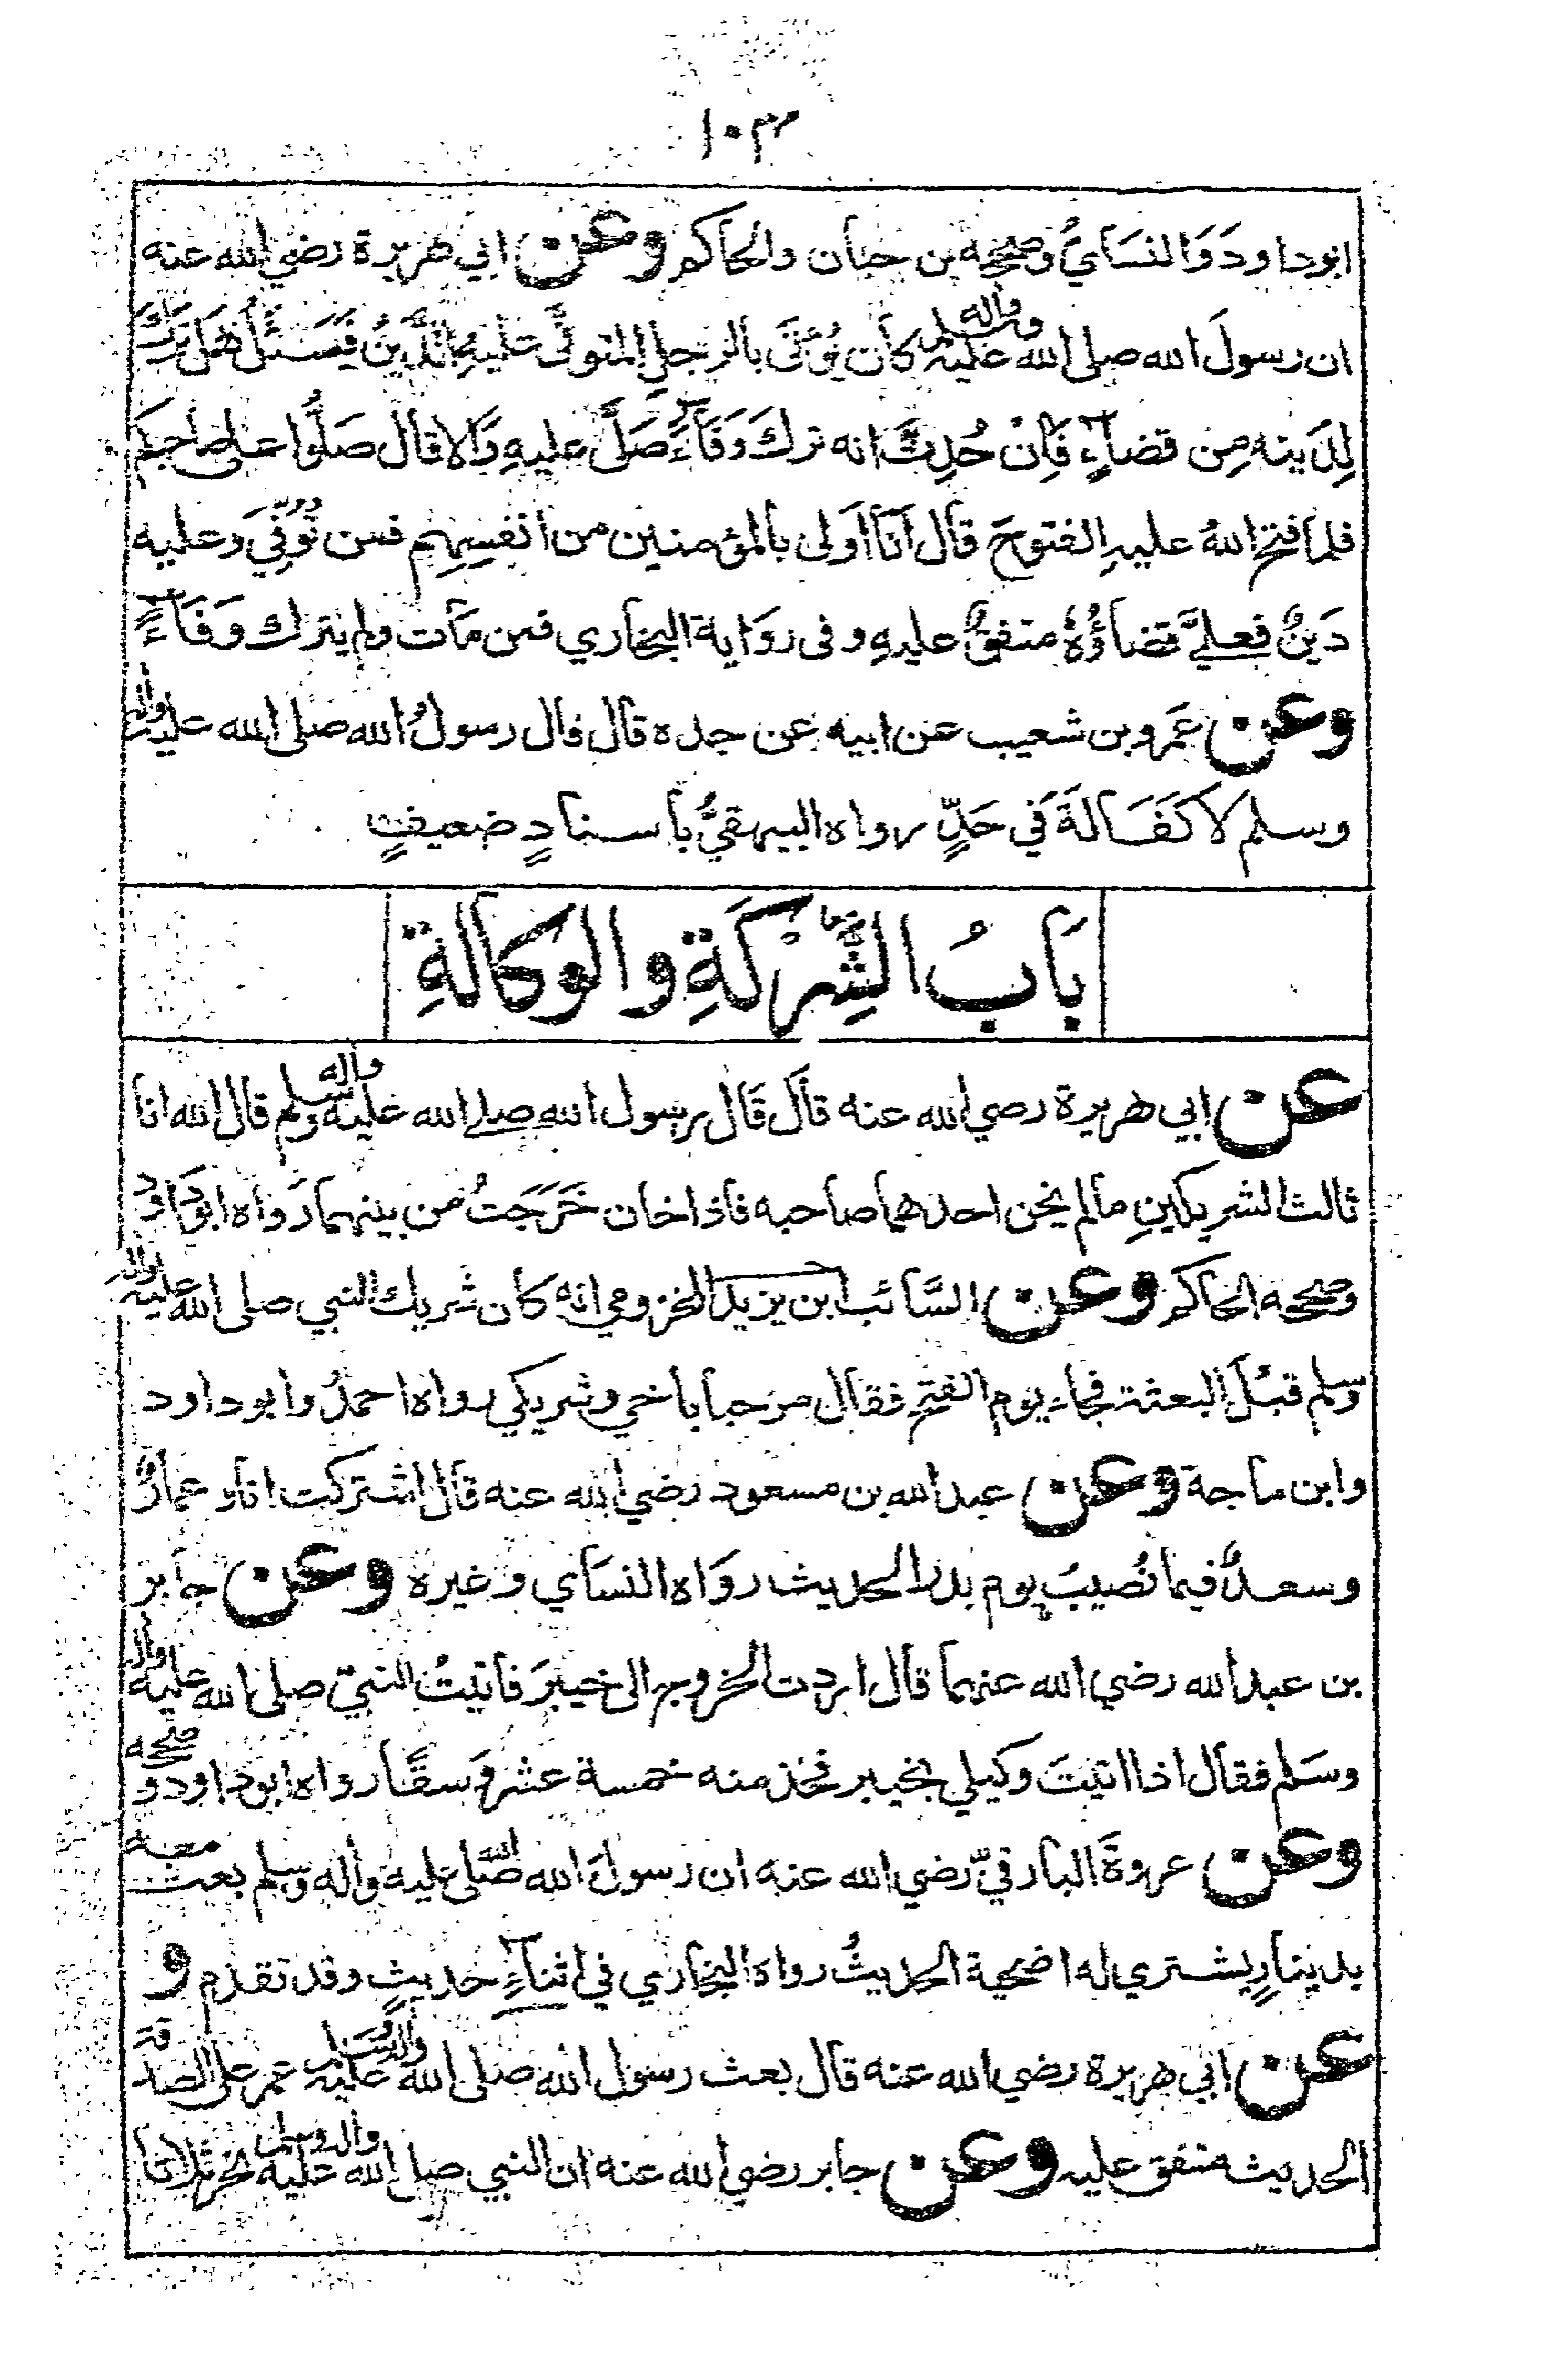 ١٠٣
ابوداود وَالنسَايُ وصححه بن حبان والحاكم وعن ابي هريرة رضي الله عنه
ان رسولَ الله صلى الله عليه واله وسلم كان يُؤتَى بالرجلِ المتوفَّى عليهِ الدَّينُ فَيَسئَلُ هَل تركَ
لِدَينه مِن قضاءٍ فَاِنْ حُدِثَ انه ترك وَفَاءً صَلَّى عليهِ وَالا قال صَلُّوا على صاحبكم
فلما فتح اللهُ عليهِ الفتوحَ قال اَنَا اَولى بالمؤمنين من انفسِهِم فمن تُوُفِّيَ وعليه
دَينٌ فعليَّ قضاؤُهُ متفقٌ عليهِ وفى رِوَاية البخاري فمن مات ولم يترك وَفَاءً
وعن عَمرو بن شعيب عن ابيه عن جده قال قال رسولُ الله صلى الله عليه واله
وسلم لاَ كَفَالَةَ في حَدٍّ رواه البيهقيُّ باسنادٍ ضعيفٍ
بَابُ الشِّرْكَةِ والوكالةِ
عن ابي هريرة رضي الله عنه قال قَال رسول الله صلے الله عليه واله وسلم قال الله انا
ثالث الشريكينِ مالم يخن احدهما صاحبه فاذا خان خَرَجتُ من بينهما رَواه ابودَاود
وصححه الحاكم وعن السَّائب ابن يزيد المخزومي انه كان شريك النبي صلى الله عليه واله
وسلم قبْلَ البعثة فجاء يوم الفتحِ فقال مرحبا باخي وشريكي رواه احمدُ وابوداود
وابن ماجة وعن عبدالله بن مسعود رضي الله عنه قال اشتركت انا وعمارٌ
وسعدٌ فيما نُصيبُ يوم بدر الحديث روَاه النسَاي وغيره وعن جابر
بن عبدالله رضي الله عنهما قال اردت الخروج الى خيبَرَ فاتيتُ النبيّ صلى الله عليه واله
وسَلم فقال اذا اتيتَ وكيلي بخيبر فخذ منه خمسة عشر وَسقًا رواه ابوداود وصححه
وعن عروةَ البارقيّ رضي الله عنه ان رسولَ الله صَلى الله عليه واله وسلم بعث معه
بدينارٍ يشتري له اضحية الحديثُ رواه البخاري في اثناءِ حديثٍ وقد تقدم و
عن ابي هريرة رضي الله عنه قال بعث رسول الله صلى الله عليه واله وسلم عمر على الصدقة
الحديث متفق عليه وعن جابر رضي الله عنه ان النبي صلى الله عليه واله وسلم نحر ثلاثا